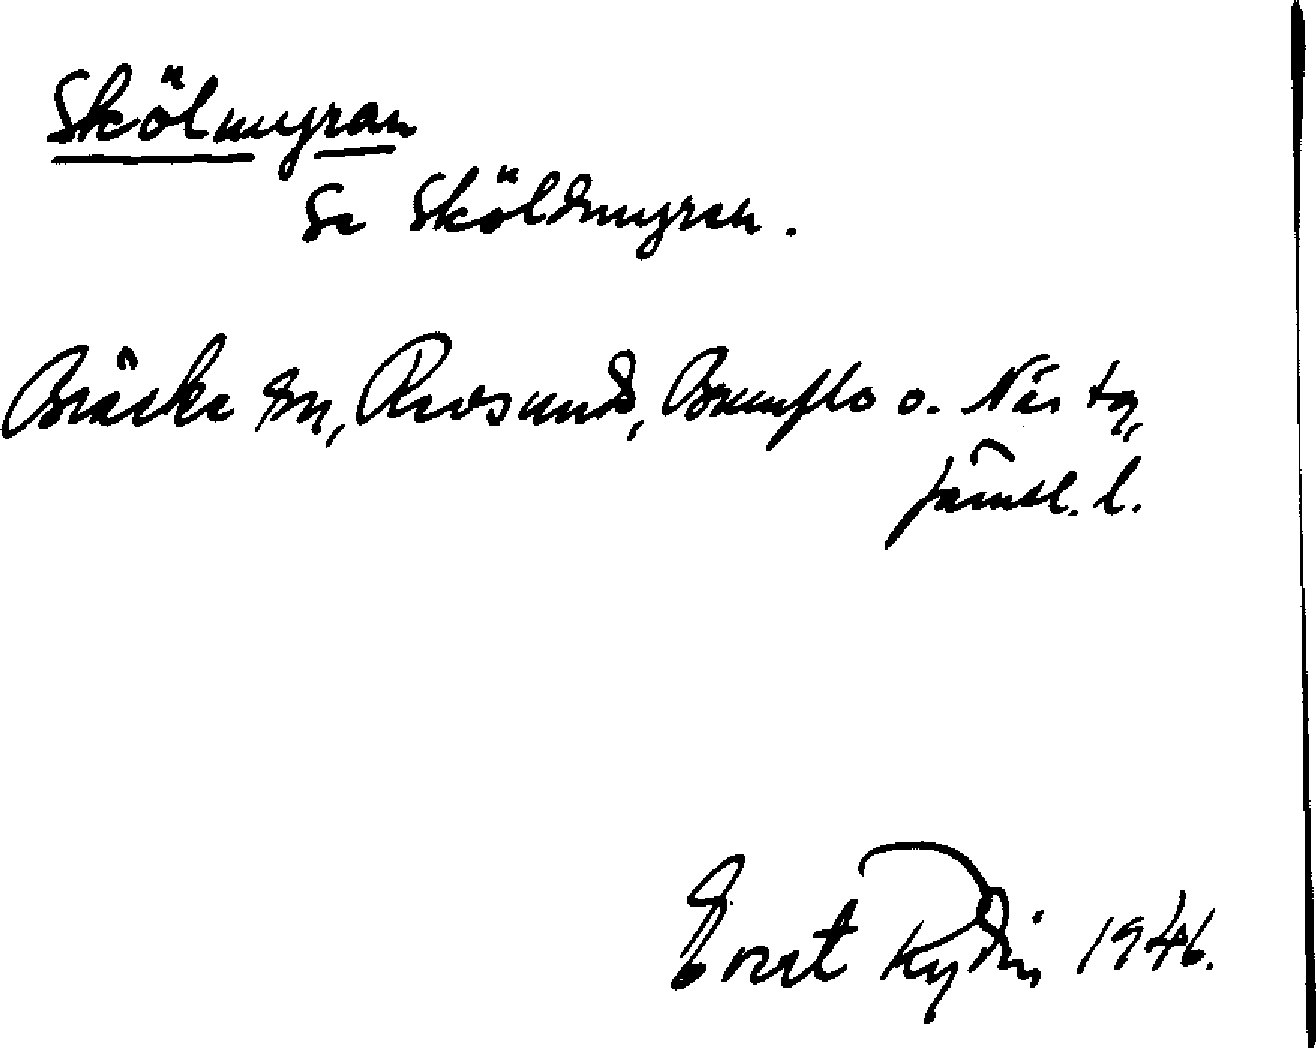 Skölmyran
Se Sköldmyran.
Bräcke sn, Revsund, Brunflo o. Näs tg,
Jämtl. l.
Ernst Rydin 1946.